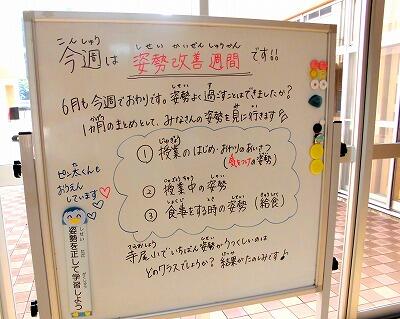 こんしゅう しせい かいぜん しゅうかん
今週は 姿勢改善週間 です!!
しせい す
6月も今週でおわりです。姿勢よく過ごすことはできましたか?
しせい み い
1ヵ月のまとめとして、みなさんの姿勢を見に行きます
じゅぎょう
① 授業のはじめ・おわりのあいさつ
(気をつけの姿勢)
じゅぎょうちゅう しせい
② 授業中の姿勢
しょくじ とき しせい きゅうしょく
③ 食事をする時の姿勢 (給食)
ピン太くんも
おうえん
しています
姿勢を正して学習しよう
てらおしょう しせい
寺尾小でいちばん姿勢がうつくしいのは
けっか
どのクラスでしょうか? 結果がたのしみです♪